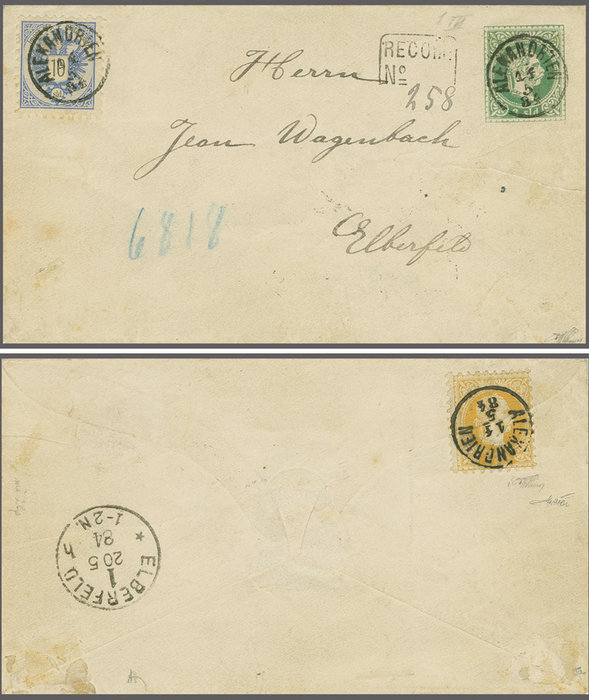 ALEXANDRIEN
14
5
84
10
RECOM.
No
258
ALEXANDRIEN
14
5
84
Herrn
Jean Wagenbach
Elberfeld
6818
ALEXANDRIEN
14
5
84
ELBERFELD
1
20 5
84
1-2N.